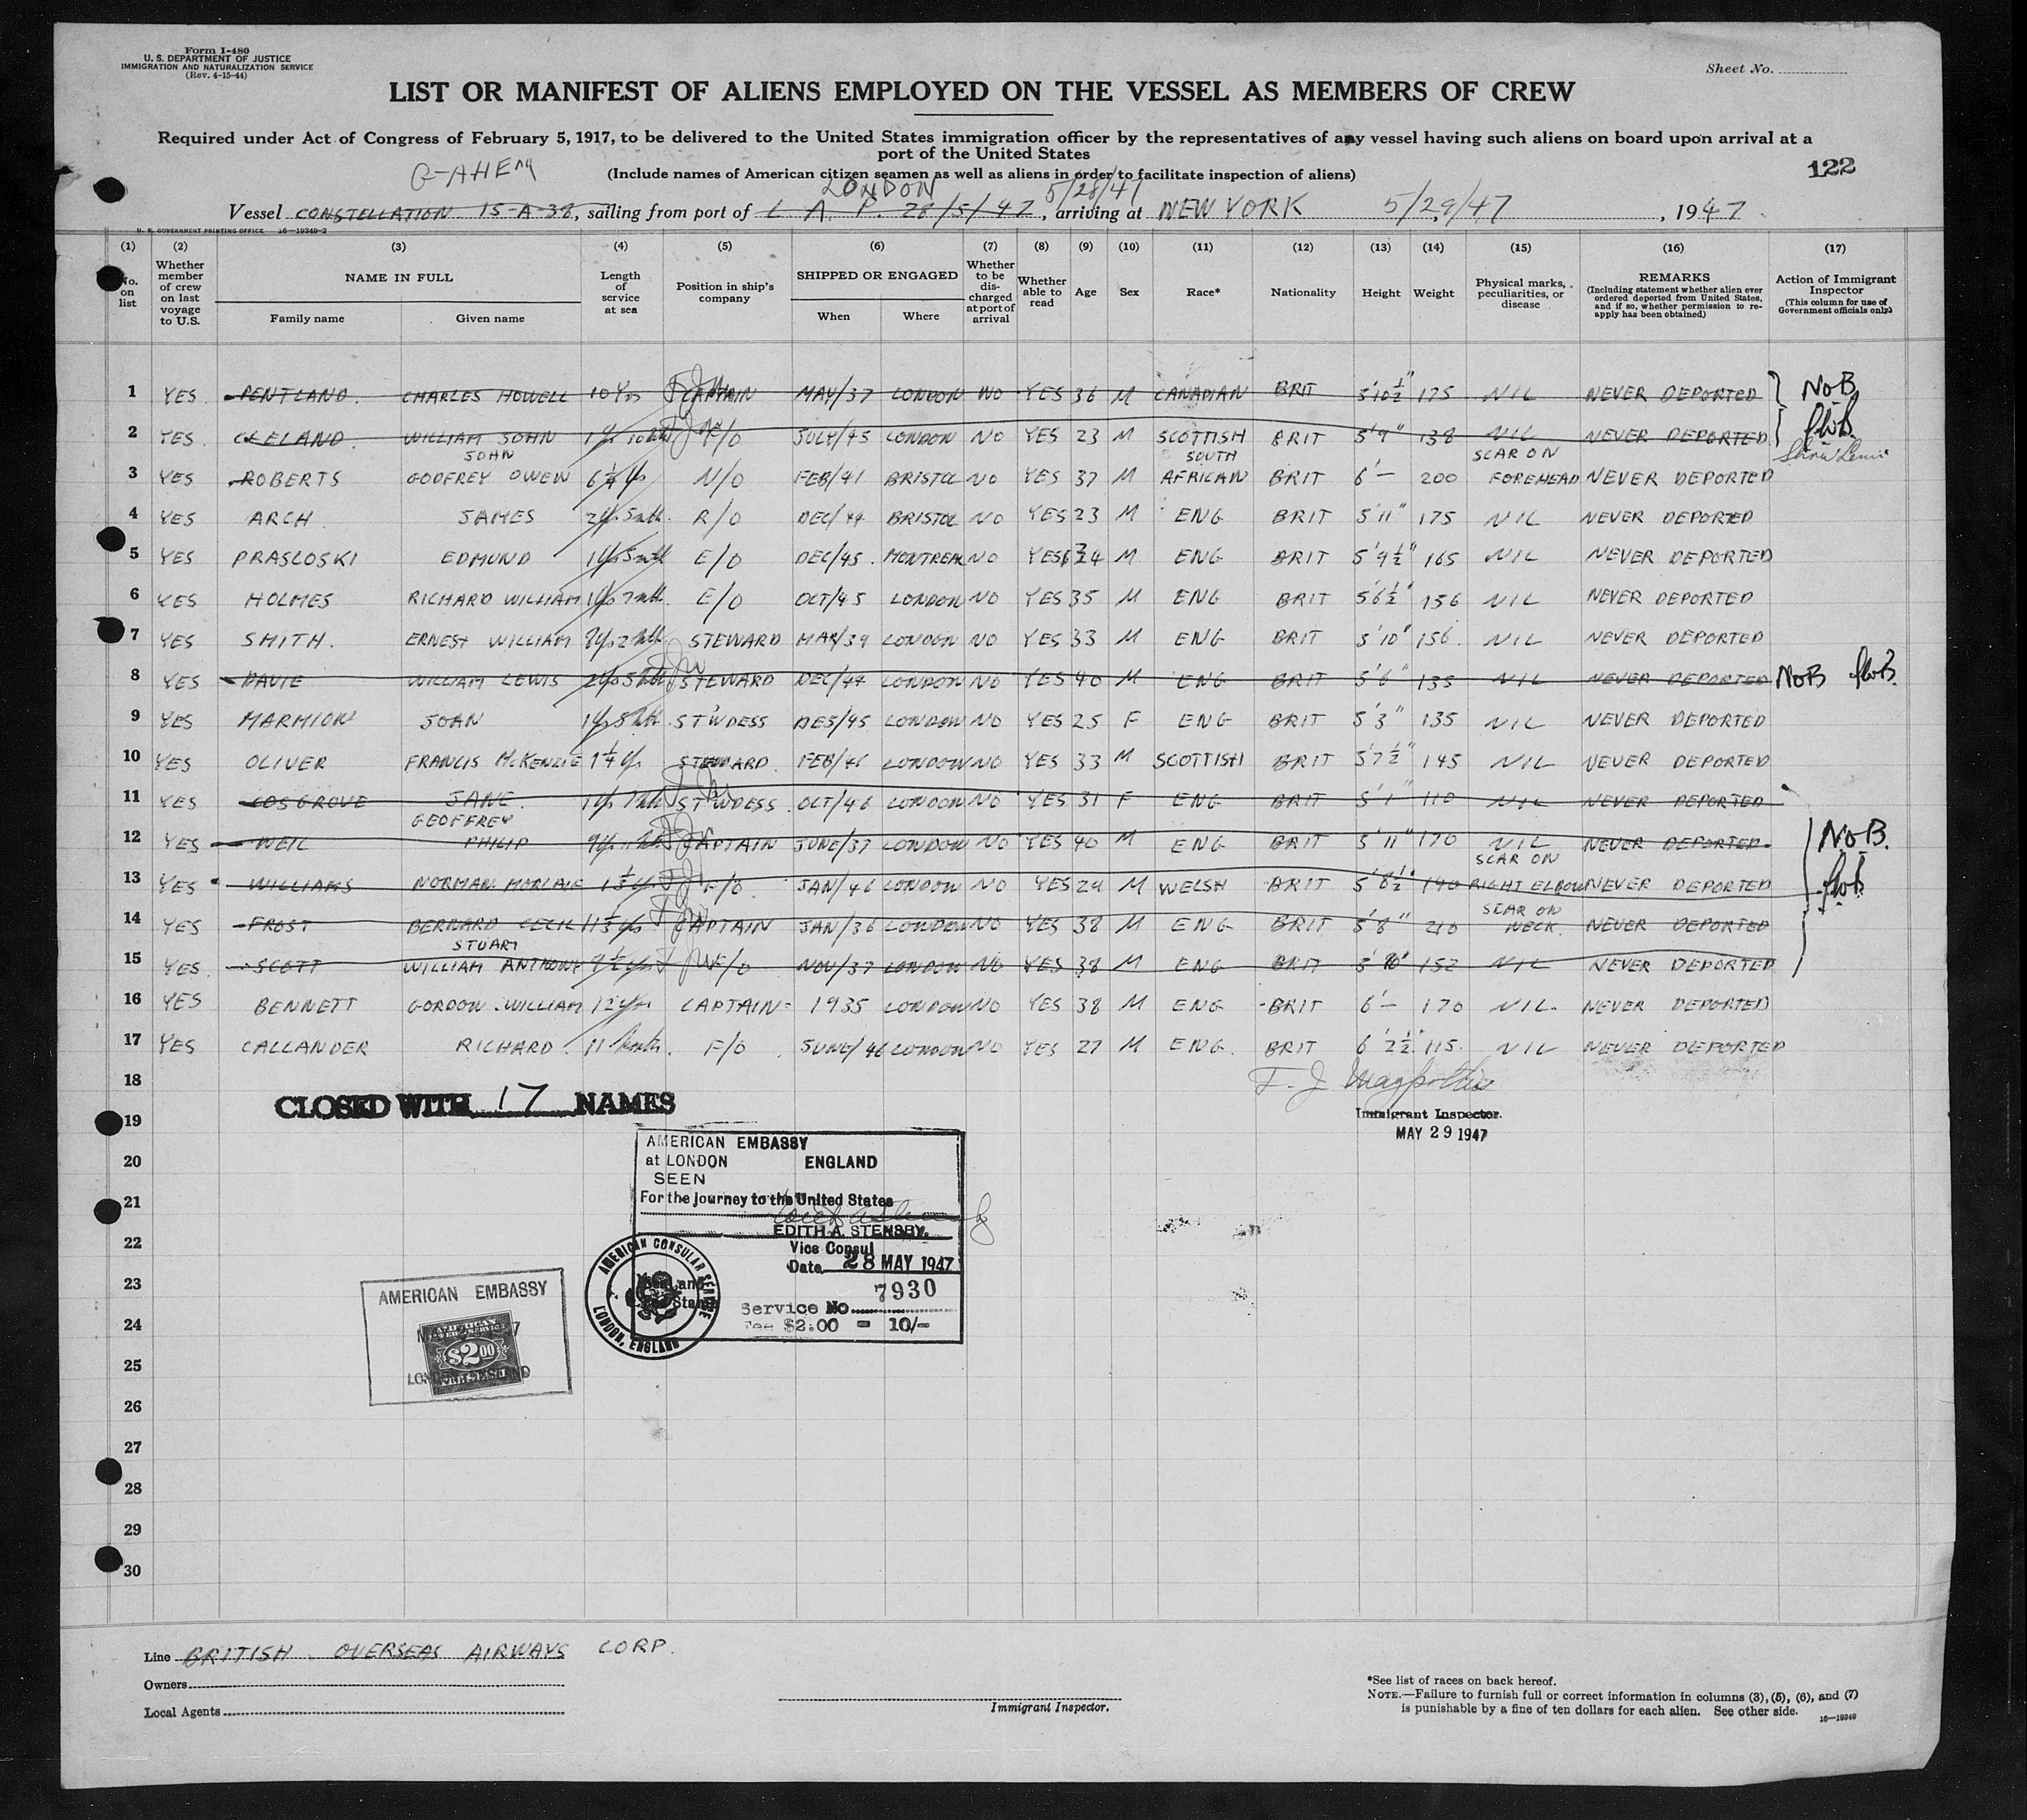 Form I-480
U. S. DEPARTMENT OF JUSTICE
IMMIGRATION AND NATURALIZATION SERVICE
(Rev. 4-15-44)
Sheet No.
LIST OR MANIFEST OF ALIENS EMPLOYED ON THE VESSEL AS MEMBERS OF CREW
Required under Act of Congress of February 5, 1917, to be delivered to the United States immigration officer by the representatives of any vessel having such aliens on board upon arrival at a
port of the United States
122
G-AHEM
(Include names of American citizen seamen as well as aliens in order to facilitate inspection of aliens)
LONDON 5/28/47
Vessel CONSTELLATION 15-A-38, sailing from port of L. A. P. 28/5/47, arriving at NEW YORK 5/29/47, 1947
U. S. GOVERNMENT PRINTING OFFICE 16-19349-2
(1) (2) (3) (4) (5) (6) (7) (8) (9) (10) (11) (12) (13) (14) (15) (16) (17)
No. on list
Whether member of crew on last voyage to U.S.
NAME IN FULL
Family name Given name
Length of service at sea
Position in ship's company
SHIPPED OR ENGAGED
When Where
Whether to be discharged at port of arrival
Whether able to read
Age Sex Race* Nationality Height Weight
Physical marks, peculiarities, or disease
REMARKS
(Including statement whether alien ever ordered deported from United States, and if so, whether permission to reapply has been obtained)
Action of Immigrant Inspector
(This column for use of Government officials only)
1 YES PENTLAND. CHARLES HOWELL 10 Yrs CAPTAIN MAY/37 LONDON NO YES 36 M CANADIAN BRIT 5'10½" 175 NIL NEVER DEPORTED NoB
2 YES. CLELAND. WILLIAM JOHN F/O JULY/45 LONDON NO YES 23 M SCOTTISH BRIT 5'9" 138 NIL NEVER DEPORTED
JOHN SOUTH SCAR ON
3 YES ROBERTS GODFREY OWEN 6¼ N/O FEB/41 BRISTOL NO YES 37 M AFRICAN BRIT 6'— 200 FOREHEAD NEVER DEPORTED
4 YES ARCH JAMES R/O DEC/44 BRISTOL NO YES 23 M ENG BRIT 5'11" 175 NIL NEVER DEPORTED
5 YES PRASLOSKI EDMUND E/O DEC/45. MONTREAL NO YES 24 M ENG BRIT 5'9½" 165 NIL NEVER DEPORTED
6 YES HOLMES RICHARD WILLIAM E/O OCT/45 LONDON NO YES 35 M ENG BRIT 5'6½" 156 NIL NEVER DEPORTED
7 YES SMITH. ERNEST WILLIAM STEWARD MAR/39 LONDON NO YES 33 M ENG BRIT 5'10" 156. NIL NEVER DEPORTED
8 YES DAVIE WILLIAM LEWIS STEWARD DEC/44 LONDON NO YES 40 M ENG BRIT 5'6" 135 NIL NEVER DEPORTED NoB
9 YES MARMION JOAN ST'WDESS DES/45 LONDON NO YES 25 F ENG BRIT 5'3" 135 NIL NEVER DEPORTED
10 YES OLIVER FRANCIS McKENZIE 1¼ STEWARD. FEB/46 LONDON NO YES 33 M SCOTTISH BRIT 5'7½" 145 NIL NEVER DEPORTED
11 YES COSGROVE JANE. ST'WDESS OCT/46 LONDON NO YES 31 F ENG BRIT 5'1" 110 NIL NEVER DEPORTED
GEOFFREY
12 YES WEIL PHILIP CAPTAIN JUNE/37 LONDON NO YES 40 M ENG BRIT 5'11" 170 NIL NEVER DEPORTED. NoB.
SCAR ON
13 YES WILLIAMS NORMAN F/O JAN/46 LONDON NO YES 24 M WELSH BRIT 5'8½" 140 RIGHT ELBOW NEVER DEPORTED
SCAR ON
14 YES FROST BERNARD CECIL 11½ CAPTAIN JAN/36 LONDON NO YES 38 M ENG BRIT 5'8" 210 NECK. NEVER DEPORTED
STUART
15 YES. SCOTT WILLIAM ANTHONY 9½ F/O NOV/37 LONDON NO YES 38 M ENG BRIT 5'10" 152 NIL NEVER DEPORTED
16 YES BENNETT GORDON WILLIAM 12 yrs CAPTAIN 1935 LONDON NO YES 38 M ENG BRIT 6'— 170 NIL. NEVER DEPORTED
17 YES CALLANDER RICHARD. 11 months. F/O JUNE/46 LONDON NO YES 27 M ENG. BRIT 6'2½" 115. NIL NEVER DEPORTED
18
CLOSED WITH 17 NAMES
Immigrant Inspector.
19
MAY 29 1947
AMERICAN EMBASSY
20
at LONDON ENGLAND
SEEN
21
For the journey to the United States
EDITH A. STENSBY.
22
Vice Consul
Date 28 MAY 1947
AMERICAN CONSULAR SERVICE
LONDON, ENGLAND
23
7930
Service No
24
Fee $2.00 = 10/-
AMERICAN EMBASSY
$2.00
25
26
27
28
29
30
Line BRITISH OVERSEAS AIRWAYS CORP.
Owners
Local Agents
Immigrant Inspector.
*See list of races on back hereof.
NOTE.—Failure to furnish full or correct information in columns (3), (5), (6), and (7)
is punishable by a fine of ten dollars for each alien. See other side.
16-19349